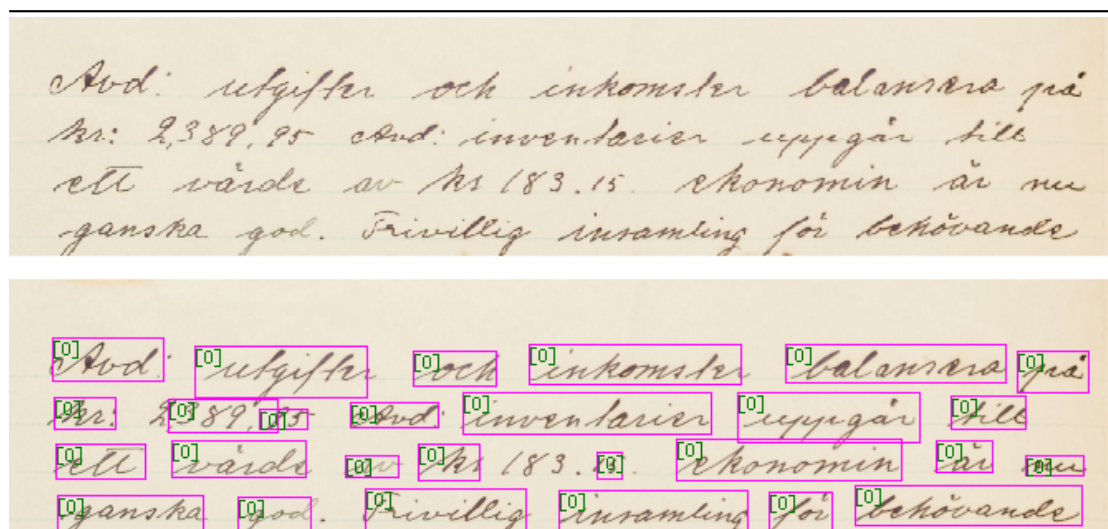 Avd: utgifter och inkomster balansera på
kr: 2,389,95 Avd: inventarier uppgår till
ett värde av kr 183.15. ekonomin är nu
ganska god. Frivillig insamling för behövande
[0] Avd: [0] utgifter [0] och [0] inkomster [0] balansera [0] på
[0] kr: [0] 2,389, [0] 95 [0] Avd: [0] inventarier [0] uppgår [0] till
[0] ett [0] värde [0] av [0] kr 183. [0] 15. [0] ekonomin [0] är [0] nu
[0] ganska [0] god. [0] Frivillig [0] insamling [0] för [0] behövande